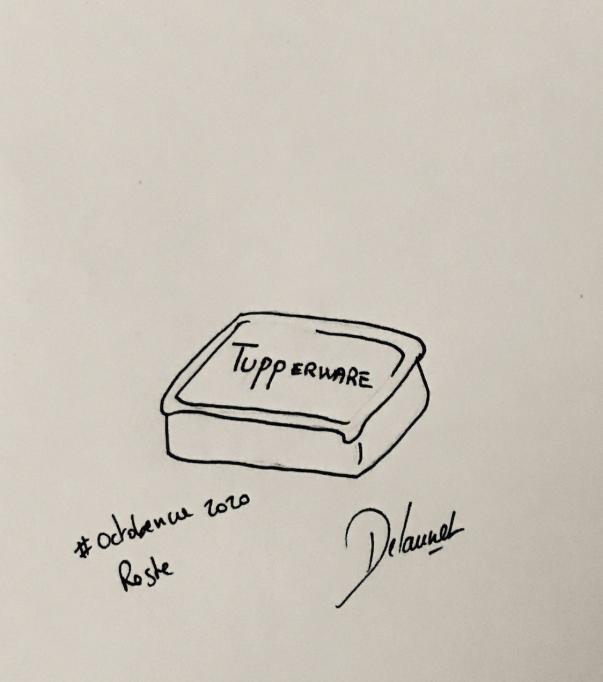 TUPPERWARE
#octobenw 2020
Roste
Delaunet